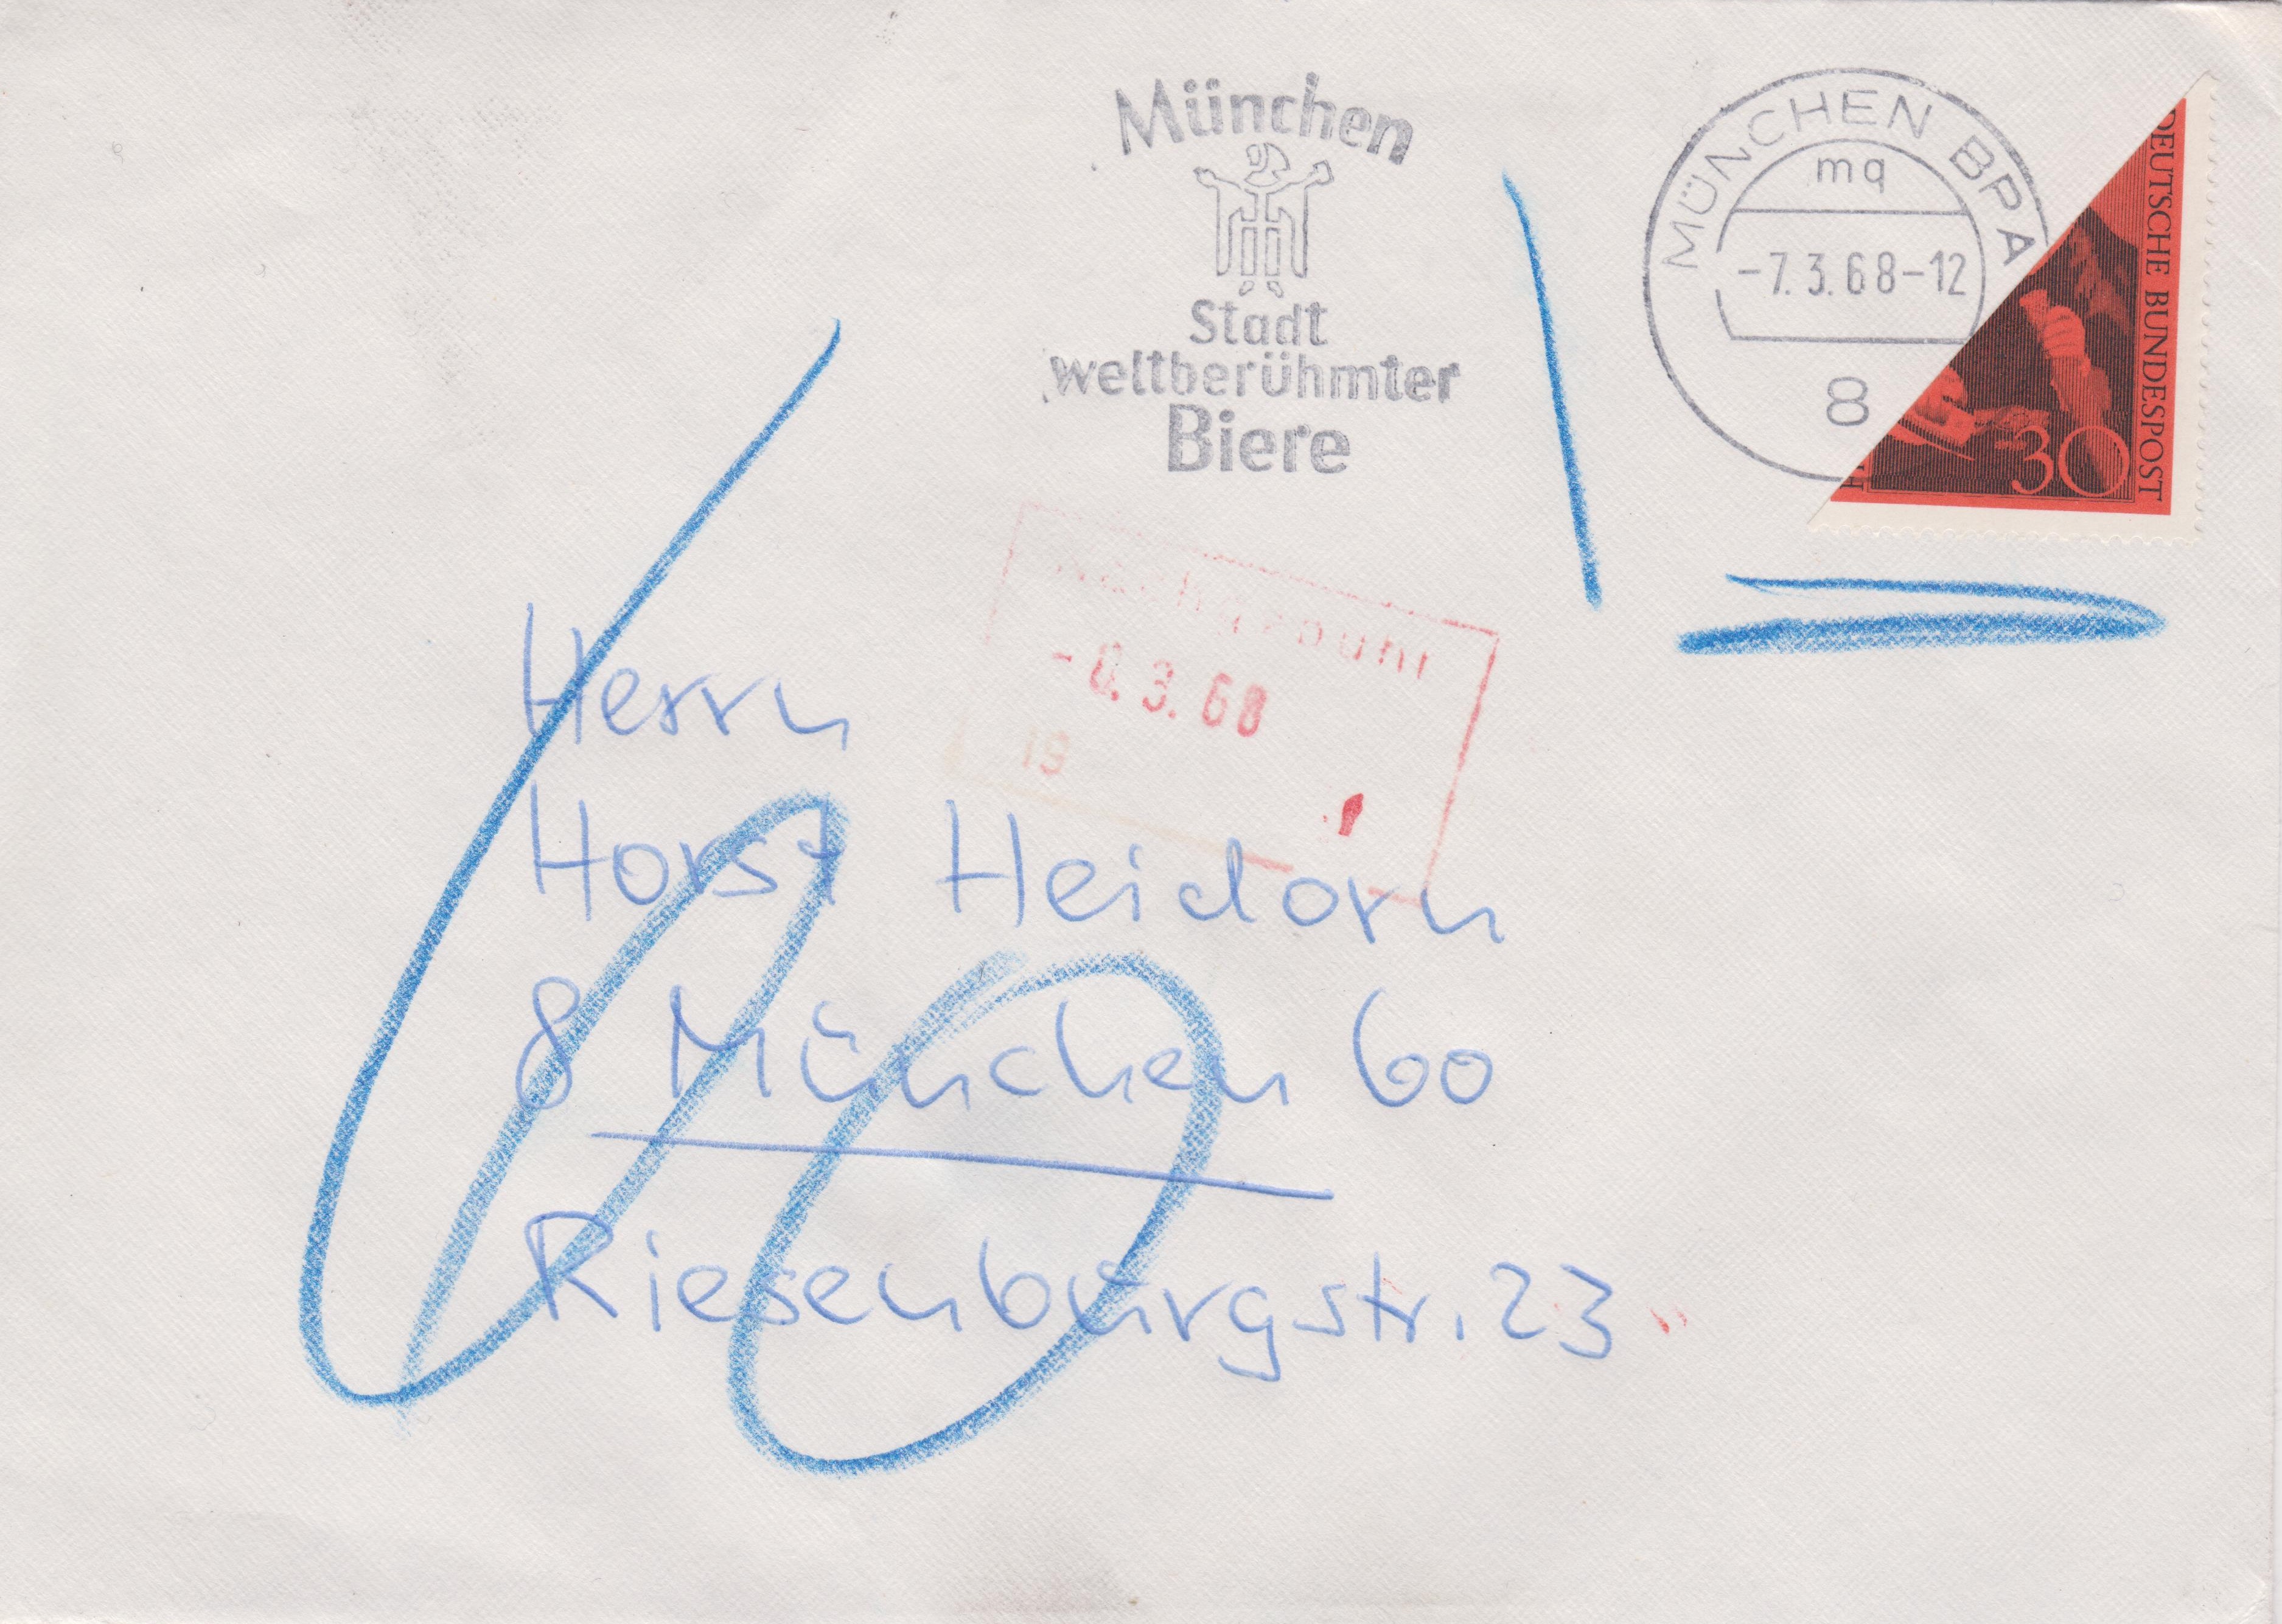 München
Stadt
weltberühmter
Biere
MÜNCHEN BPA
mq
-7.3.68-12
8
DEUTSCHE BUNDESPOST
30
Nachgebühr
-8.3.68
19
60
Herrn
Horst Heidorn
8 München 60
Riesenburgstr. 23